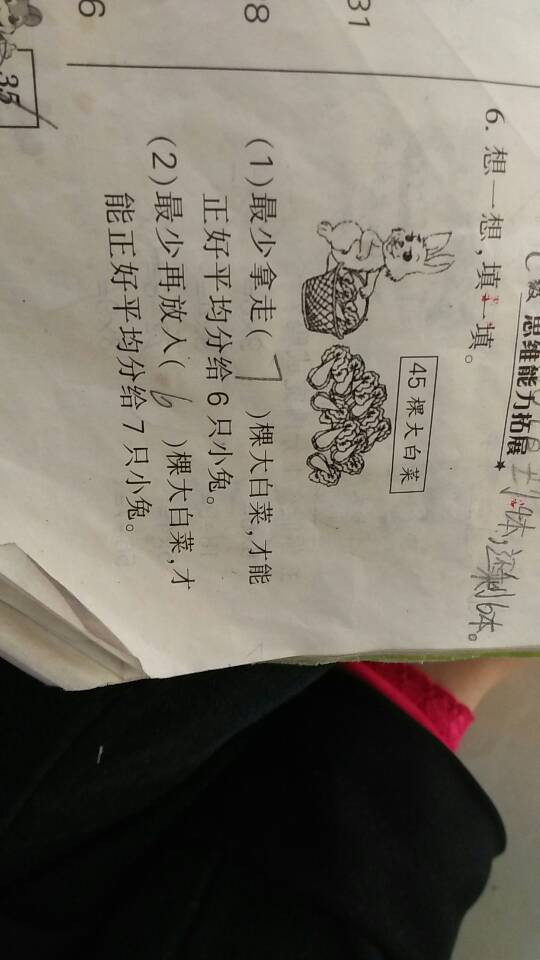 31
8
6
35
C级 思维能力拓展
本,还剩6本。
6. 想一想,填一填。
45棵大白菜
(1)最少拿走( 7 )棵大白菜,才能
正好平均分给6只小兔。
(2)最少再放入( 6 )棵大白菜,才
能正好平均分给7只小兔。